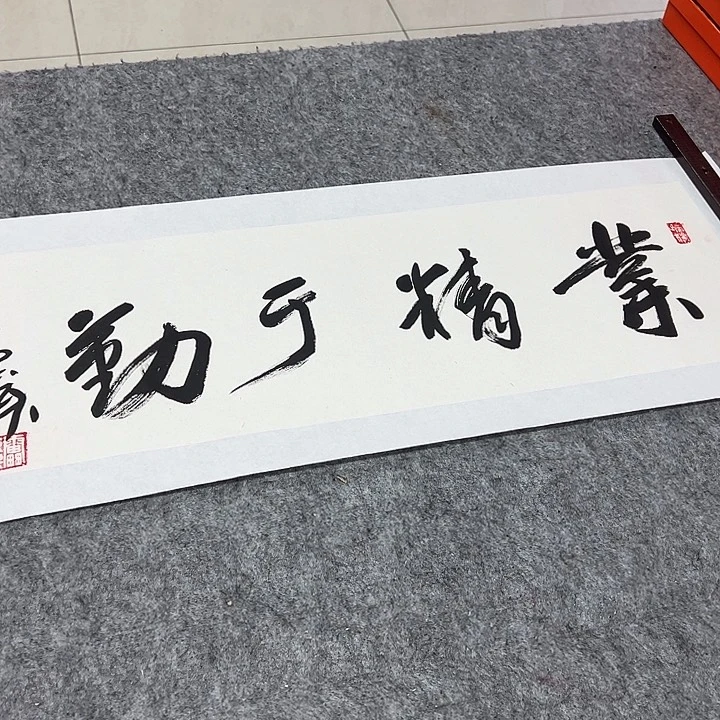 業精于勤